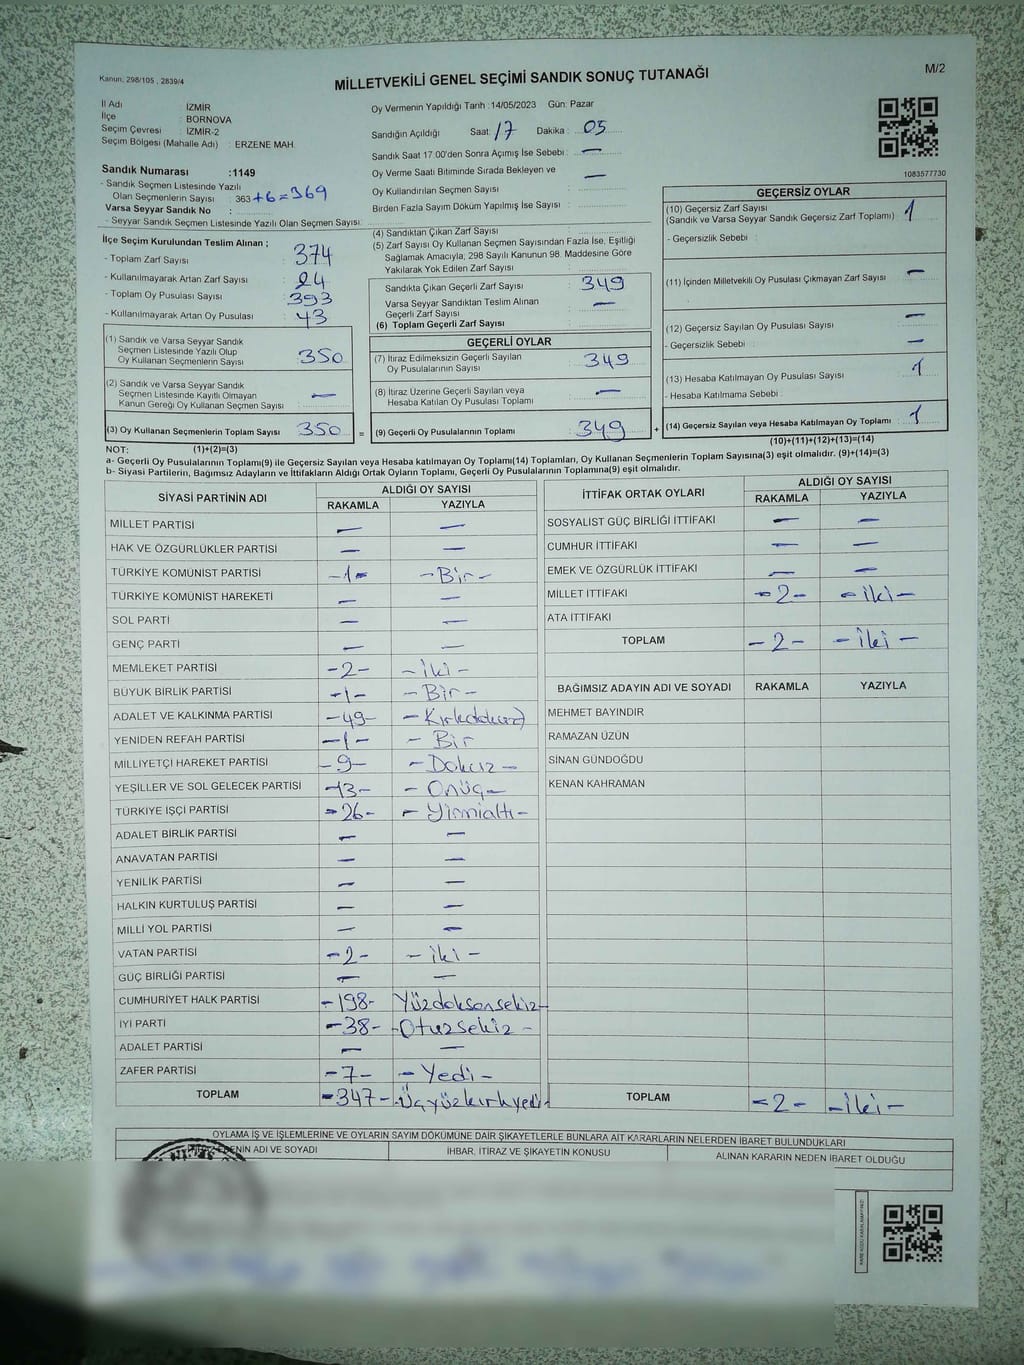 Kanun, 298/105 , 2839/4
MİLLETVEKİLİ GENEL SEÇİMİ SANDIK SONUÇ TUTANAĞI
M/2
İl Adı İZMİR
İlçe BORNOVA
Seçim Çevresi : İZMİR-2
Seçim Bölgesi (Mahalle Adı) : ERZENE MAH.
Oy Vermenin Yapıldığı Tarih :14/05/2023 Gün: Pazar
Sandığın Açıldığı Saat : 17 Dakika : 05
Sandık Saat 17.00'den Sonra Açımış İse Sebebi : —
Oy Verme Saati Bitiminde Sırada Bekleyen ve
Oy Kullandırılan Seçmen Sayısı : —
Birden Fazla Sayım Döküm Yapılmış İse Sayısı :
1083577730
Sandık Numarası :1149
- Sandık Seçmen Listesinde Yazılı
Olan Seçmenlerin Sayısı : 363 +6=369
Varsa Seyyar Sandık No :
- Seyyar Sandık Seçmen Listesinde Yazılı Olan Seçmen Sayısı:
İlçe Seçim Kurulundan Teslim Alınan ;
- Toplam Zarf Sayısı : 374
- Kullanılmayarak Artan Zarf Sayısı : 24
- Toplam Oy Pusulası Sayısı : 393
- Kullanılmayarak Artan Oy Pusulası : 43
(1) Sandık ve Varsa Seyyar Sandık
Seçmen Listesinde Yazılı Olup
Oy Kullanan Seçmenlerin Sayısı : 350
(2) Sandık ve Varsa Seyyar Sandık
Seçmen Listesinde Kayıtlı Olmayan
Kanun Gereği Oy Kullanan Seçmen Sayısı : —
(3) Oy Kullanan Seçmenlerin Toplam Sayısı : 350 =
(4) Sandıktan Çıkan Zarf Sayısı :
(5) Zarf Sayısı Oy Kullanan Seçmen Sayısından Fazla İse, Eşitliği
Sağlamak Amacıyla; 298 Sayılı Kanunun 98. Maddesine Göre
Yakılarak Yok Edilen Zarf Sayısı :
Sandıkta Çıkan Geçerli Zarf Sayısı : 349
Varsa Seyyar Sandıktan Teslim Alınan
Geçerli Zarf Sayısı : —
(6) Toplam Geçerli Zarf Sayısı :
GEÇERLİ OYLAR
(7) İtiraz Edilmeksizin Geçerli Sayılan
Oy Pusulalarının Sayısı : 349
(8) İtiraz Üzerine Geçerli Sayılan veya
Hesaba Katılan Oy Pusulası Toplamı : —
(9) Geçerli Oy Pusulalarının Toplamı : 349 +
GEÇERSİZ OYLAR
(10) Geçersiz Zarf Sayısı
(Sandık ve Varsa Seyyar Sandık Geçersiz Zarf Toplamı) : 1
- Geçersizlik Sebebi :
(11) İçinden Milletvekili Oy Pusulası Çıkmayan Zarf Sayısı : —
(12) Geçersiz Sayılan Oy Pusulası Sayısı : —
- Geçersizlik Sebebi : —
(13) Hesaba Katılmayan Oy Pusulası Sayısı : 1
- Hesaba Katılmama Sebebi :
(14) Geçersiz Sayılan veya Hesaba Katılmayan Oy Toplamı : 1
NOT: (1)+(2)=(3)
(10)+(11)+(12)+(13)=(14)
a- Geçerli Oy Pusulalarının Toplamı(9) ile Geçersiz Sayılan veya Hesaba katılmayan Oy Toplamı(14) Toplamları, Oy Kullanan Seçmenlerin Toplam Sayısına(3) eşit olmalıdır. (9)+(14)=(3)
b- Siyasi Partilerin, Bağımsız Adayların ve İttifakların Aldığı Ortak Oyların Toplamı, Geçerli Oy Pusulalarının Toplamına(9) eşit olmalıdır.
SİYASİ PARTİNİN ADI ALDIĞI OY SAYISI
RAKAMLA YAZIYLA
MİLLET PARTİSİ — —
HAK VE ÖZGÜRLÜKLER PARTİSİ — —
TÜRKİYE KOMÜNİST PARTİSİ -1- -Bir-
TÜRKİYE KOMÜNİST HAREKETİ — —
SOL PARTİ — —
GENÇ PARTİ — —
MEMLEKET PARTİSİ -2- -iki-
BÜYÜK BİRLİK PARTİSİ -1- -Bir-
ADALET VE KALKINMA PARTİSİ -49- -Kırkdokuz
YENİDEN REFAH PARTİSİ -1- -Bir
MİLLİYETÇİ HAREKET PARTİSİ -9- -Dokuz-
YEŞİLLER VE SOL GELECEK PARTİSİ -13- -Onüç-
TÜRKİYE İŞÇİ PARTİSİ -26- -Yirmialtı-
ADALET BİRLİK PARTİSİ — —
ANAVATAN PARTİSİ — —
YENİLİK PARTİSİ — —
HALKIN KURTULUŞ PARTİSİ — —
MİLLİ YOL PARTİSİ — —
VATAN PARTİSİ -2- -iki-
GÜÇ BİRLİĞİ PARTİSİ — —
CUMHURİYET HALK PARTİSİ -198- Yüzdoksansekiz-
İYİ PARTİ -38- -Otuzsekiz-
ADALET PARTİSİ — —
ZAFER PARTİSİ -7- -Yedi-
TOPLAM -347- -Üçyüzkırkyedi-
İTTİFAK ORTAK OYLARI ALDIĞI OY SAYISI
RAKAMLA YAZIYLA
SOSYALİST GÜÇ BİRLİĞİ İTTİFAKI — —
CUMHUR İTTİFAKI — —
EMEK VE ÖZGÜRLÜK İTTİFAKI — —
MİLLET İTTİFAKI -2- -iki-
ATA İTTİFAKI
TOPLAM -2- -iki-
BAĞIMSIZ ADAYIN ADI VE SOYADI RAKAMLA YAZIYLA
MEHMET BAYINDIR
RAMAZAN ÜZÜN
SİNAN GÜNDOĞDU
KENAN KAHRAMAN
TOPLAM -2- -iki-
OYLAMA İŞ VE İŞLEMLERİNE VE OYLARIN SAYIM DÖKÜMÜNE DAİR ŞİKAYETLERLE BUNLARA AİT KARARLARIN NELERDEN İBARET BULUNDUKLARI
ADI VE SOYADI İHBAR, İTİRAZ VE ŞİKAYETİN KONUSU ALINAN KARARIN NEDEN İBARET OLDUĞU